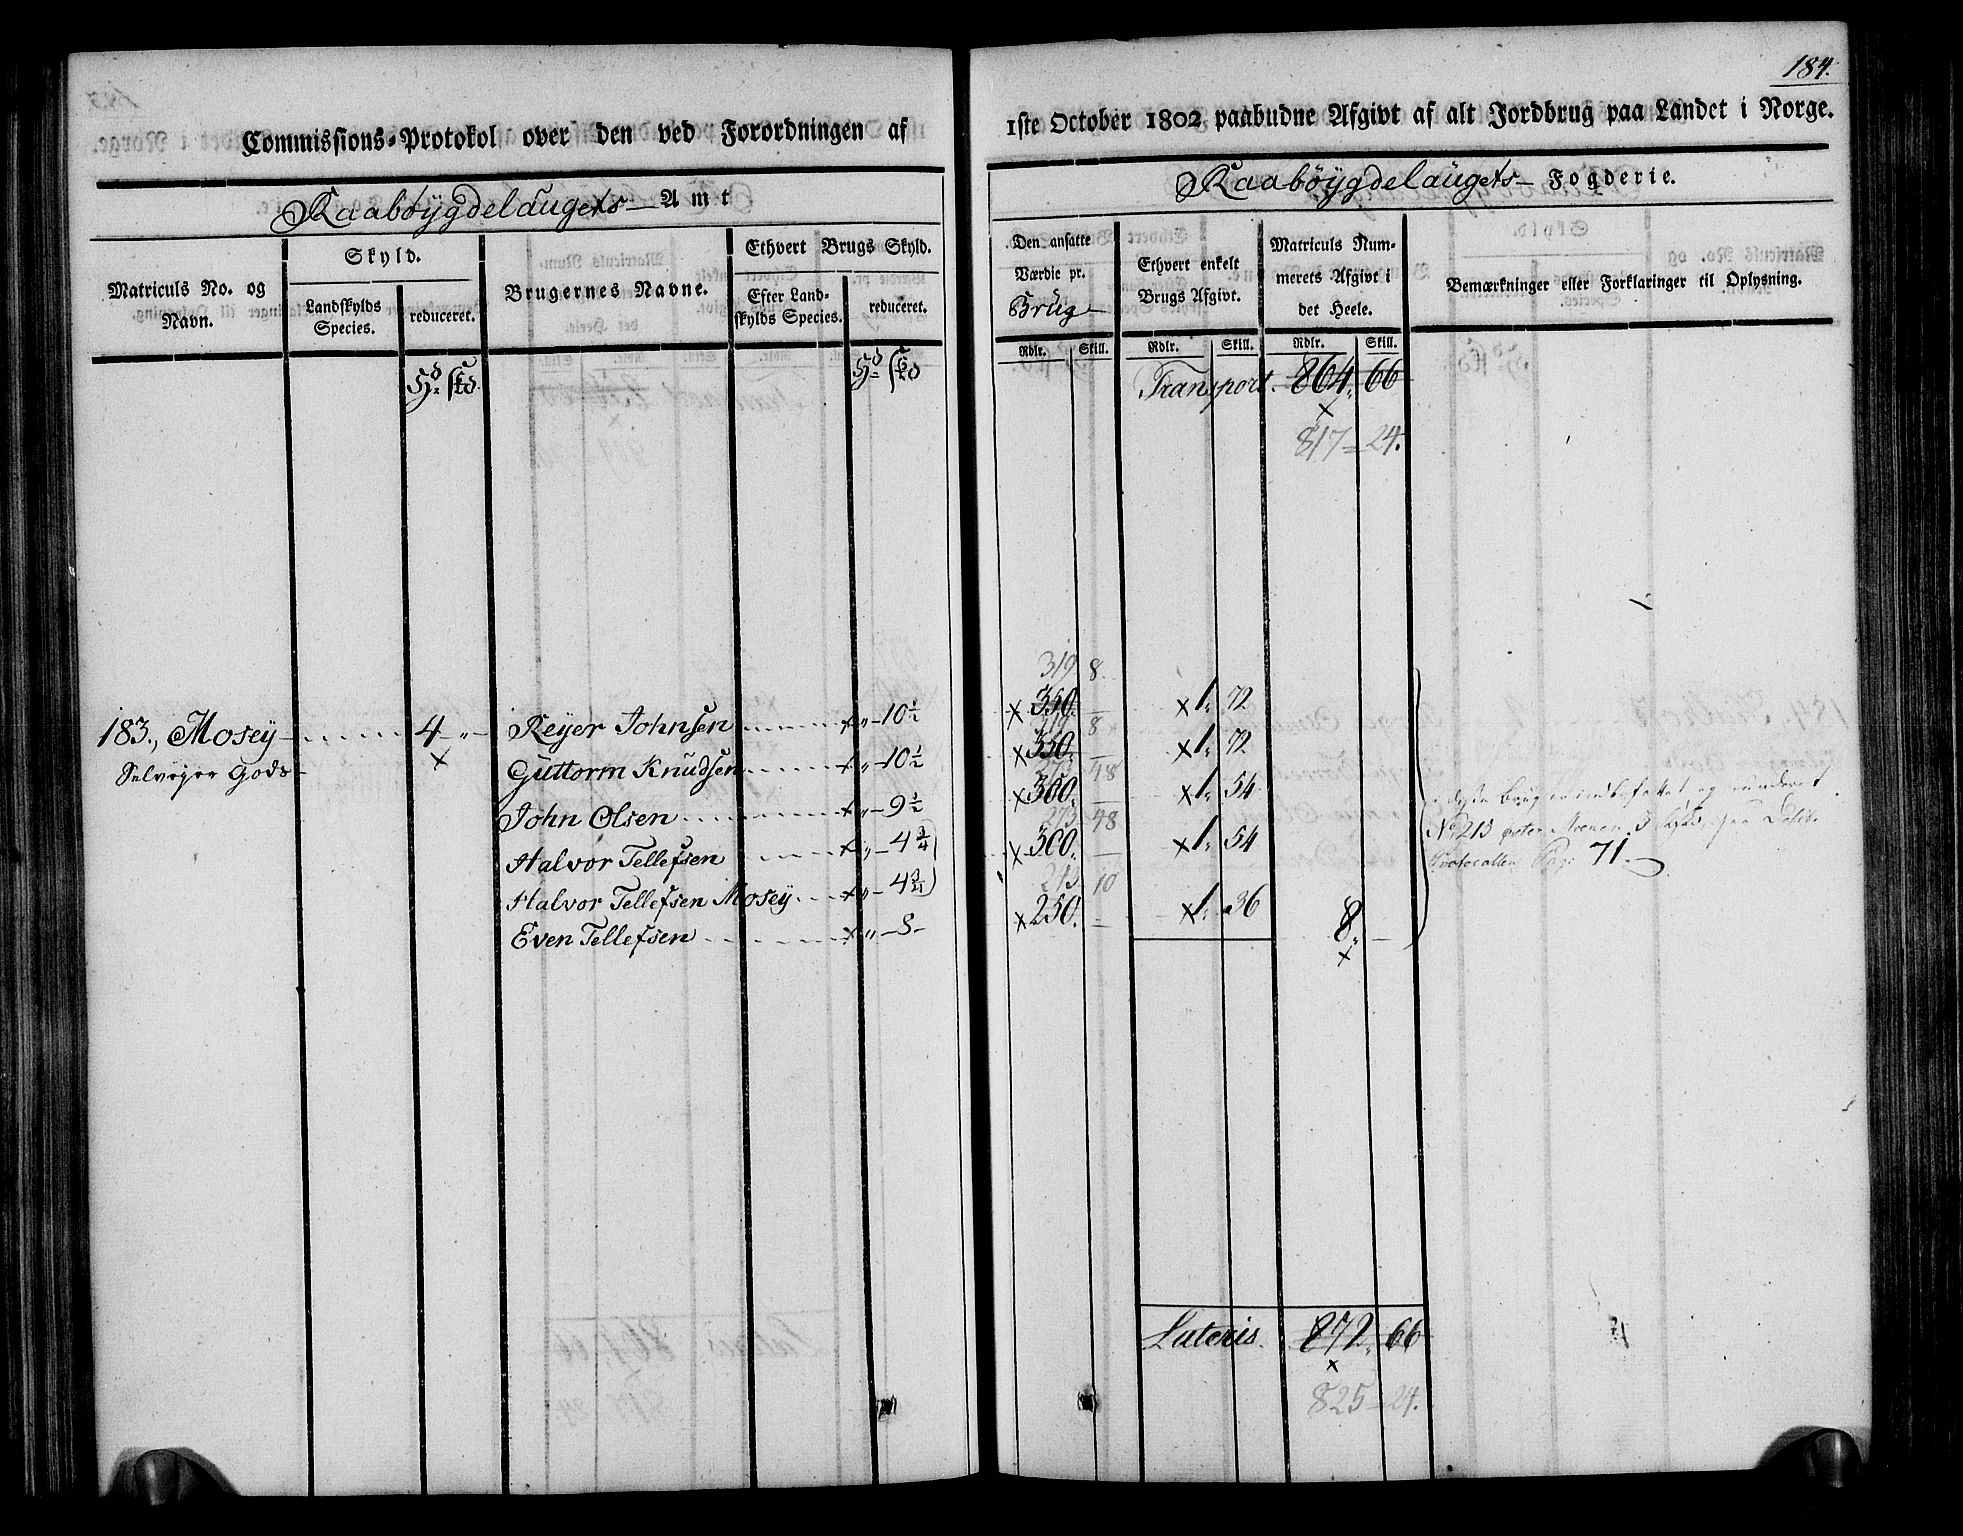 184.
Commissions-Protokol over den ved Forordningen af
1ste October 1802 paabudne Afgivt af alt Jordbrug paa Landet i Norge.
Raabøygdelaugets Amt
Raabøygdelaugets Fogderie.
Matriculs No. og Navn.
Skyld.
Landskylds Species.
reduceret.
Brugernes Navne.
Ethvert Brugs Skyld.
Efter Landskylds Species.
reduceret.
Den ansatte Værdie pr. Brug
Ethvert enkelt Brugs Afgivt.
Matriculs Nummerets Afgivt i det Heele.
Bemærkninger eller Forklaringer til Oplysning.
Rdlr. Skill. Rdlr. Skill. Rdlr. Skill.
Hd. Skd. Hd. Skd.
Transport. 864. 66
817 = 24.
319 8
183., Mosey 4 „ Reyer Johnsen „ 10 1/2 350. — 1. 72
319 8
Selveyer Gods Guttorm Knudsen „ 10 1/2 350. — 1. 72
273 48
John Olsen „ 9 1/2 300. — 1. 54
273 48
Halvor Tellefsen „ 4 3/4 300. — 1. 54
Halvor Tellefsen Mosey „ 4 3/4
213 10
Even Tellefsen „ 8 250. — 1. 36 8. —
No. 213
Protocollen Pag: 71.
Lateris. 872. 66
825 = 24.